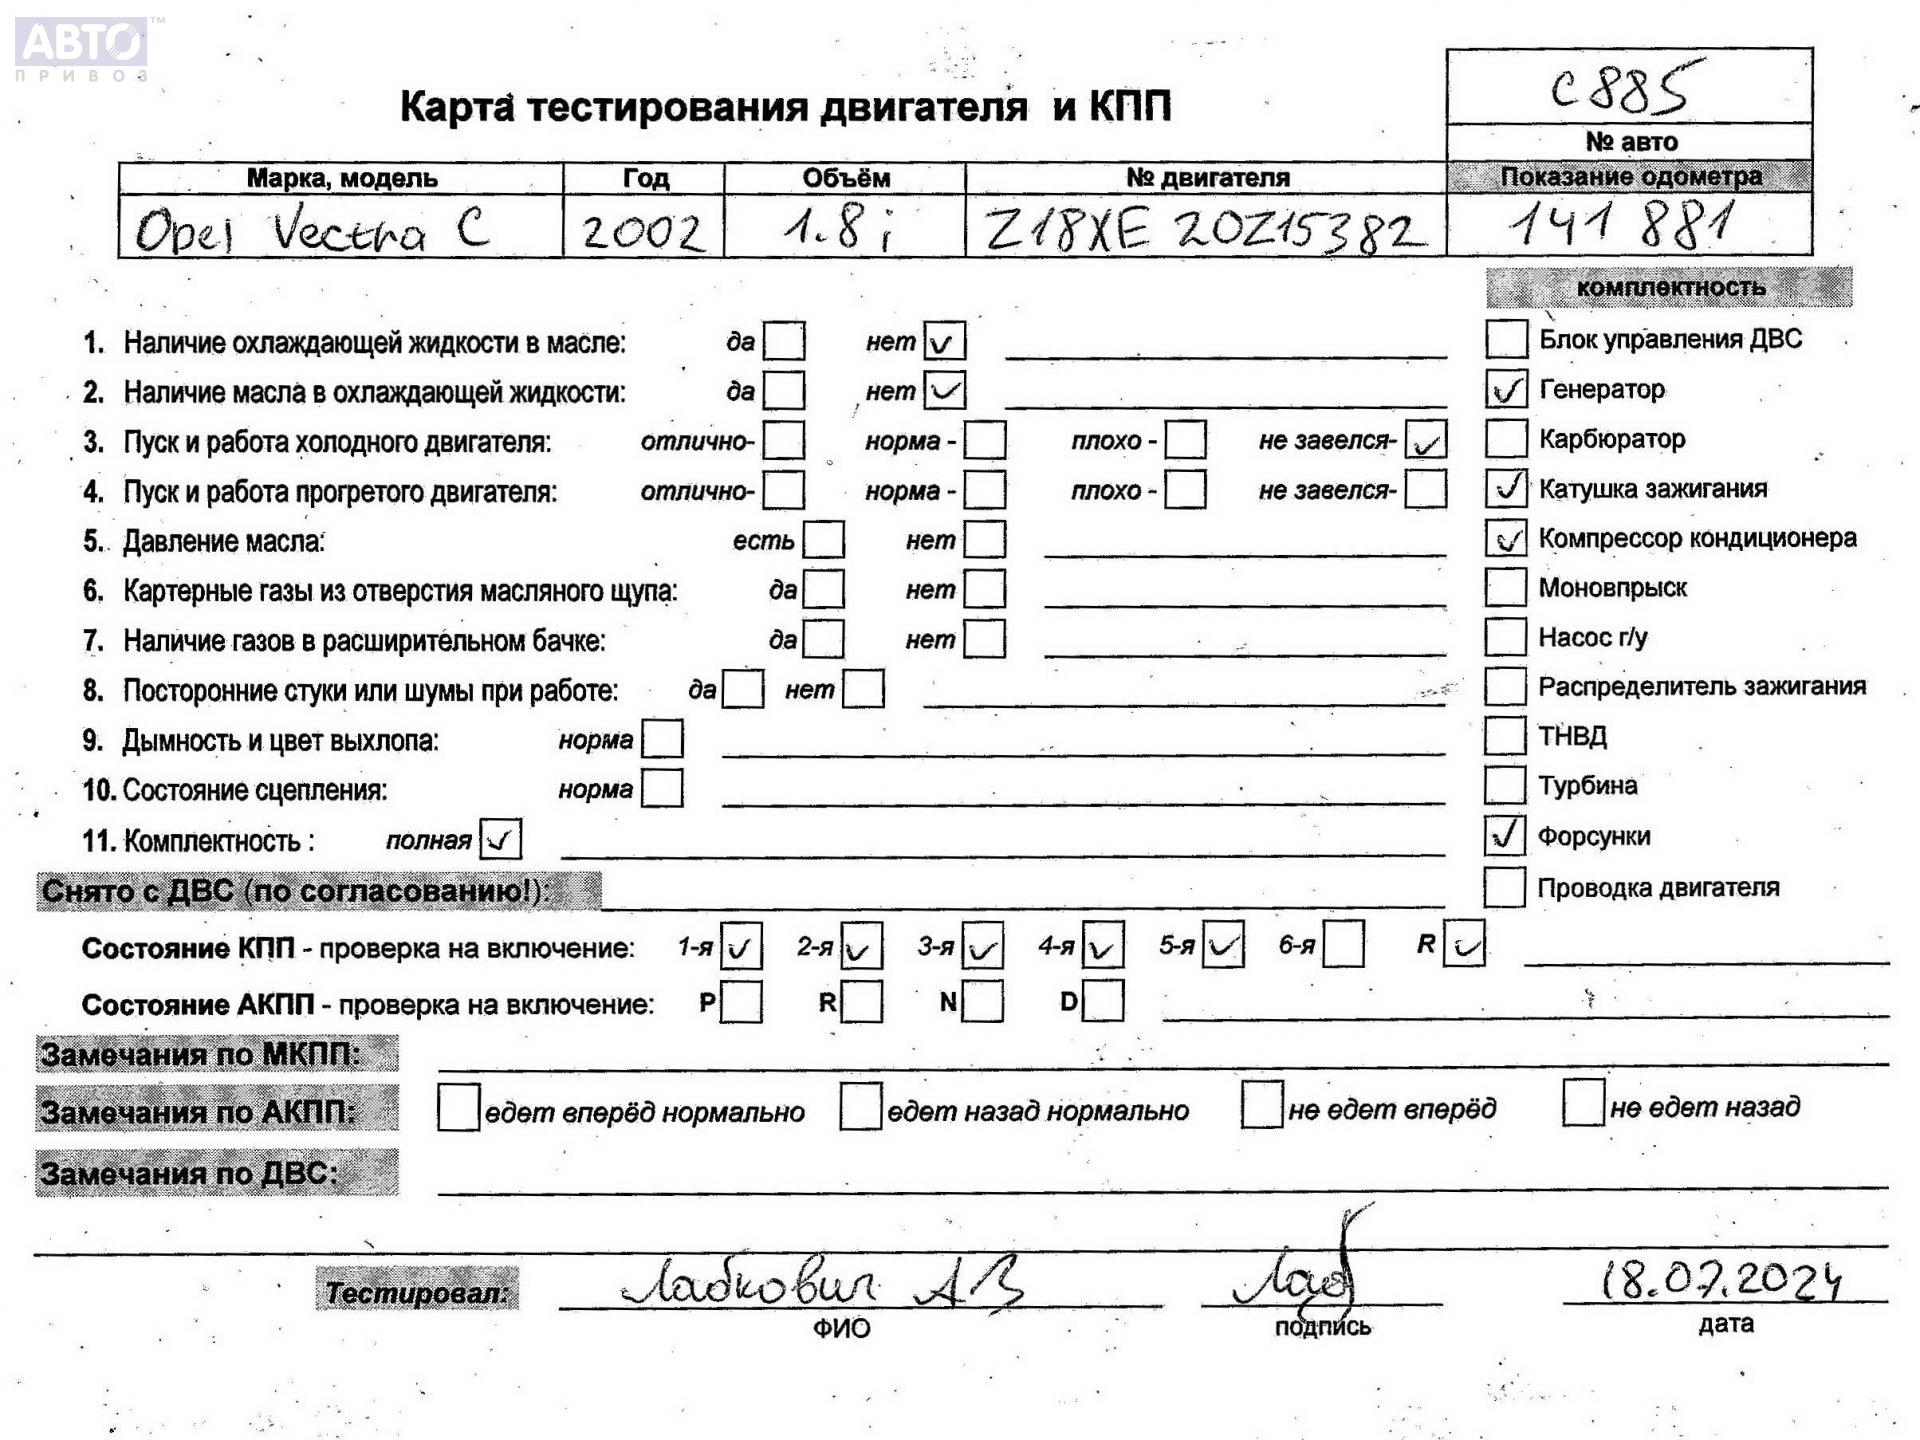 АВТО™
ПРИВОЗ
С885
Карта тестирования двигателя и КПП
№ авто
Марка, модель Год Объём № двигателя Показание одометра
Opel Vectra C 2002 1.8i Z18XE 20Z15382 141 881
комплектность
1. Наличие охлаждающей жидкости в масле: да нет ✓ Блок управления ДВС
2. Наличие масла в охлаждающей жидкости: да нет ✓ ✓ Генератор
3. Пуск и работа холодного двигателя: отлично- норма - плохо - не завелся- ✓ Карбюратор
4. Пуск и работа прогретого двигателя: отлично- норма - плохо - не завелся- ✓ Катушка зажигания
5. Давление масла: есть нет ✓ Компрессор кондиционера
6. Картерные газы из отверстия масляного щупа: да нет Моновпрыск
7. Наличие газов в расширительном бачке: да нет Насос г/у
8. Посторонние стуки или шумы при работе: да нет Распределитель зажигания
9. Дымность и цвет выхлопа: норма ТНВД
10. Состояние сцепления: норма Турбина
11. Комплектность : полная ✓ ✓ Форсунки
Снято с ДВС (по согласованию!): Проводка двигателя
Состояние КПП - проверка на включение: 1-я ✓ 2-я ✓ 3-я ✓ 4-я ✓ 5-я ✓ 6-я R ✓
Состояние АКПП - проверка на включение: P R N D
Замечания по МКПП:
Замечания по АКПП: едет вперёд нормально едет назад нормально не едет вперёд не едет назад
Замечания по ДВС:
Тестировал: Лабкович А В Лаб 18.07.2024
ФИО подпись дата